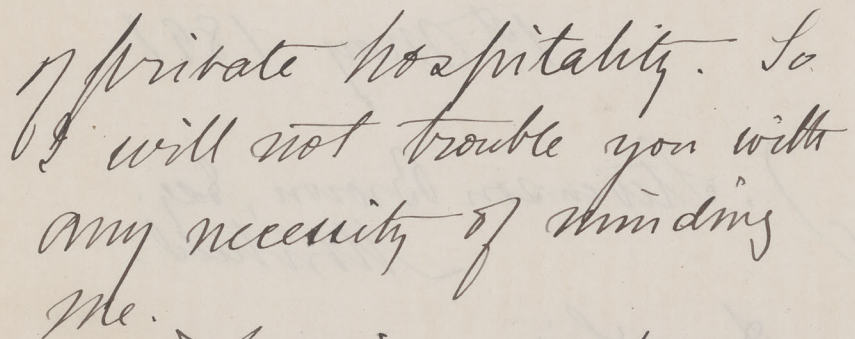 of private hospitality. So
I will not trouble you with
any necessity of minding
me.